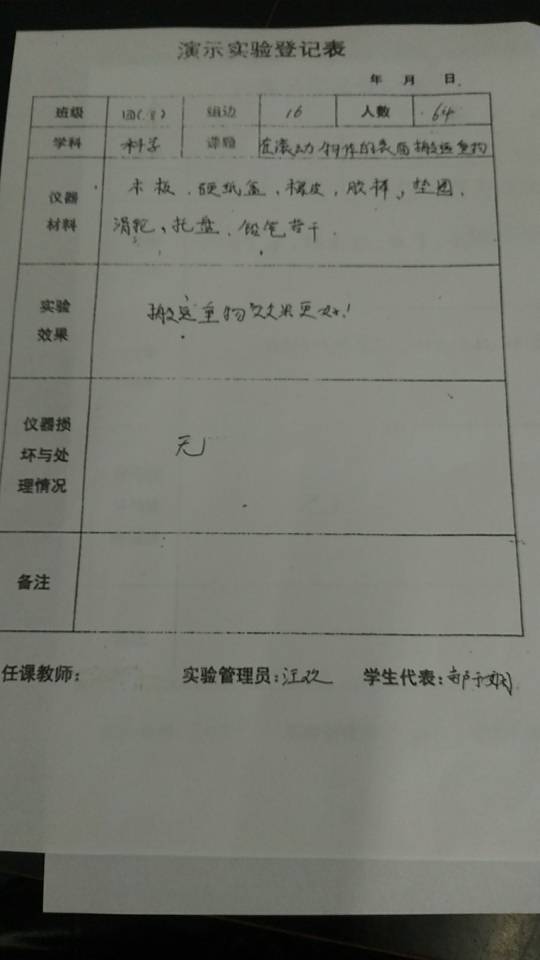 演示实验登记表
年 月 日
班级 四(8) 组边 16 人数 64
学科 科学 课题 在滚动物体的表面搬运重物
仪器材料 木板、硬纸盒、橡皮、胶棒、垫圈、
滑轮、托盘、铅笔若干
实验效果 搬运重物效果更好!
仪器损坏与处理情况 无
备注
任课教师: 实验管理员:汪欢 学生代表: